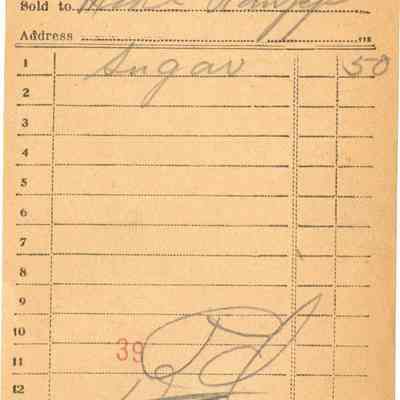 Sold to
Address
1 Sugar 50
2
3
4
5
6
7
8
9
10
39
11
12